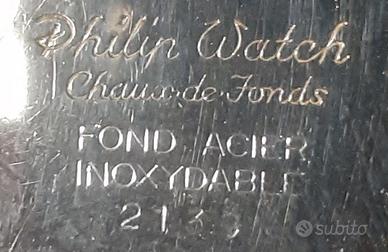 Philip Watch
Chaux-de-Fonds
FOND ACIER
INOXYDABLE
subito